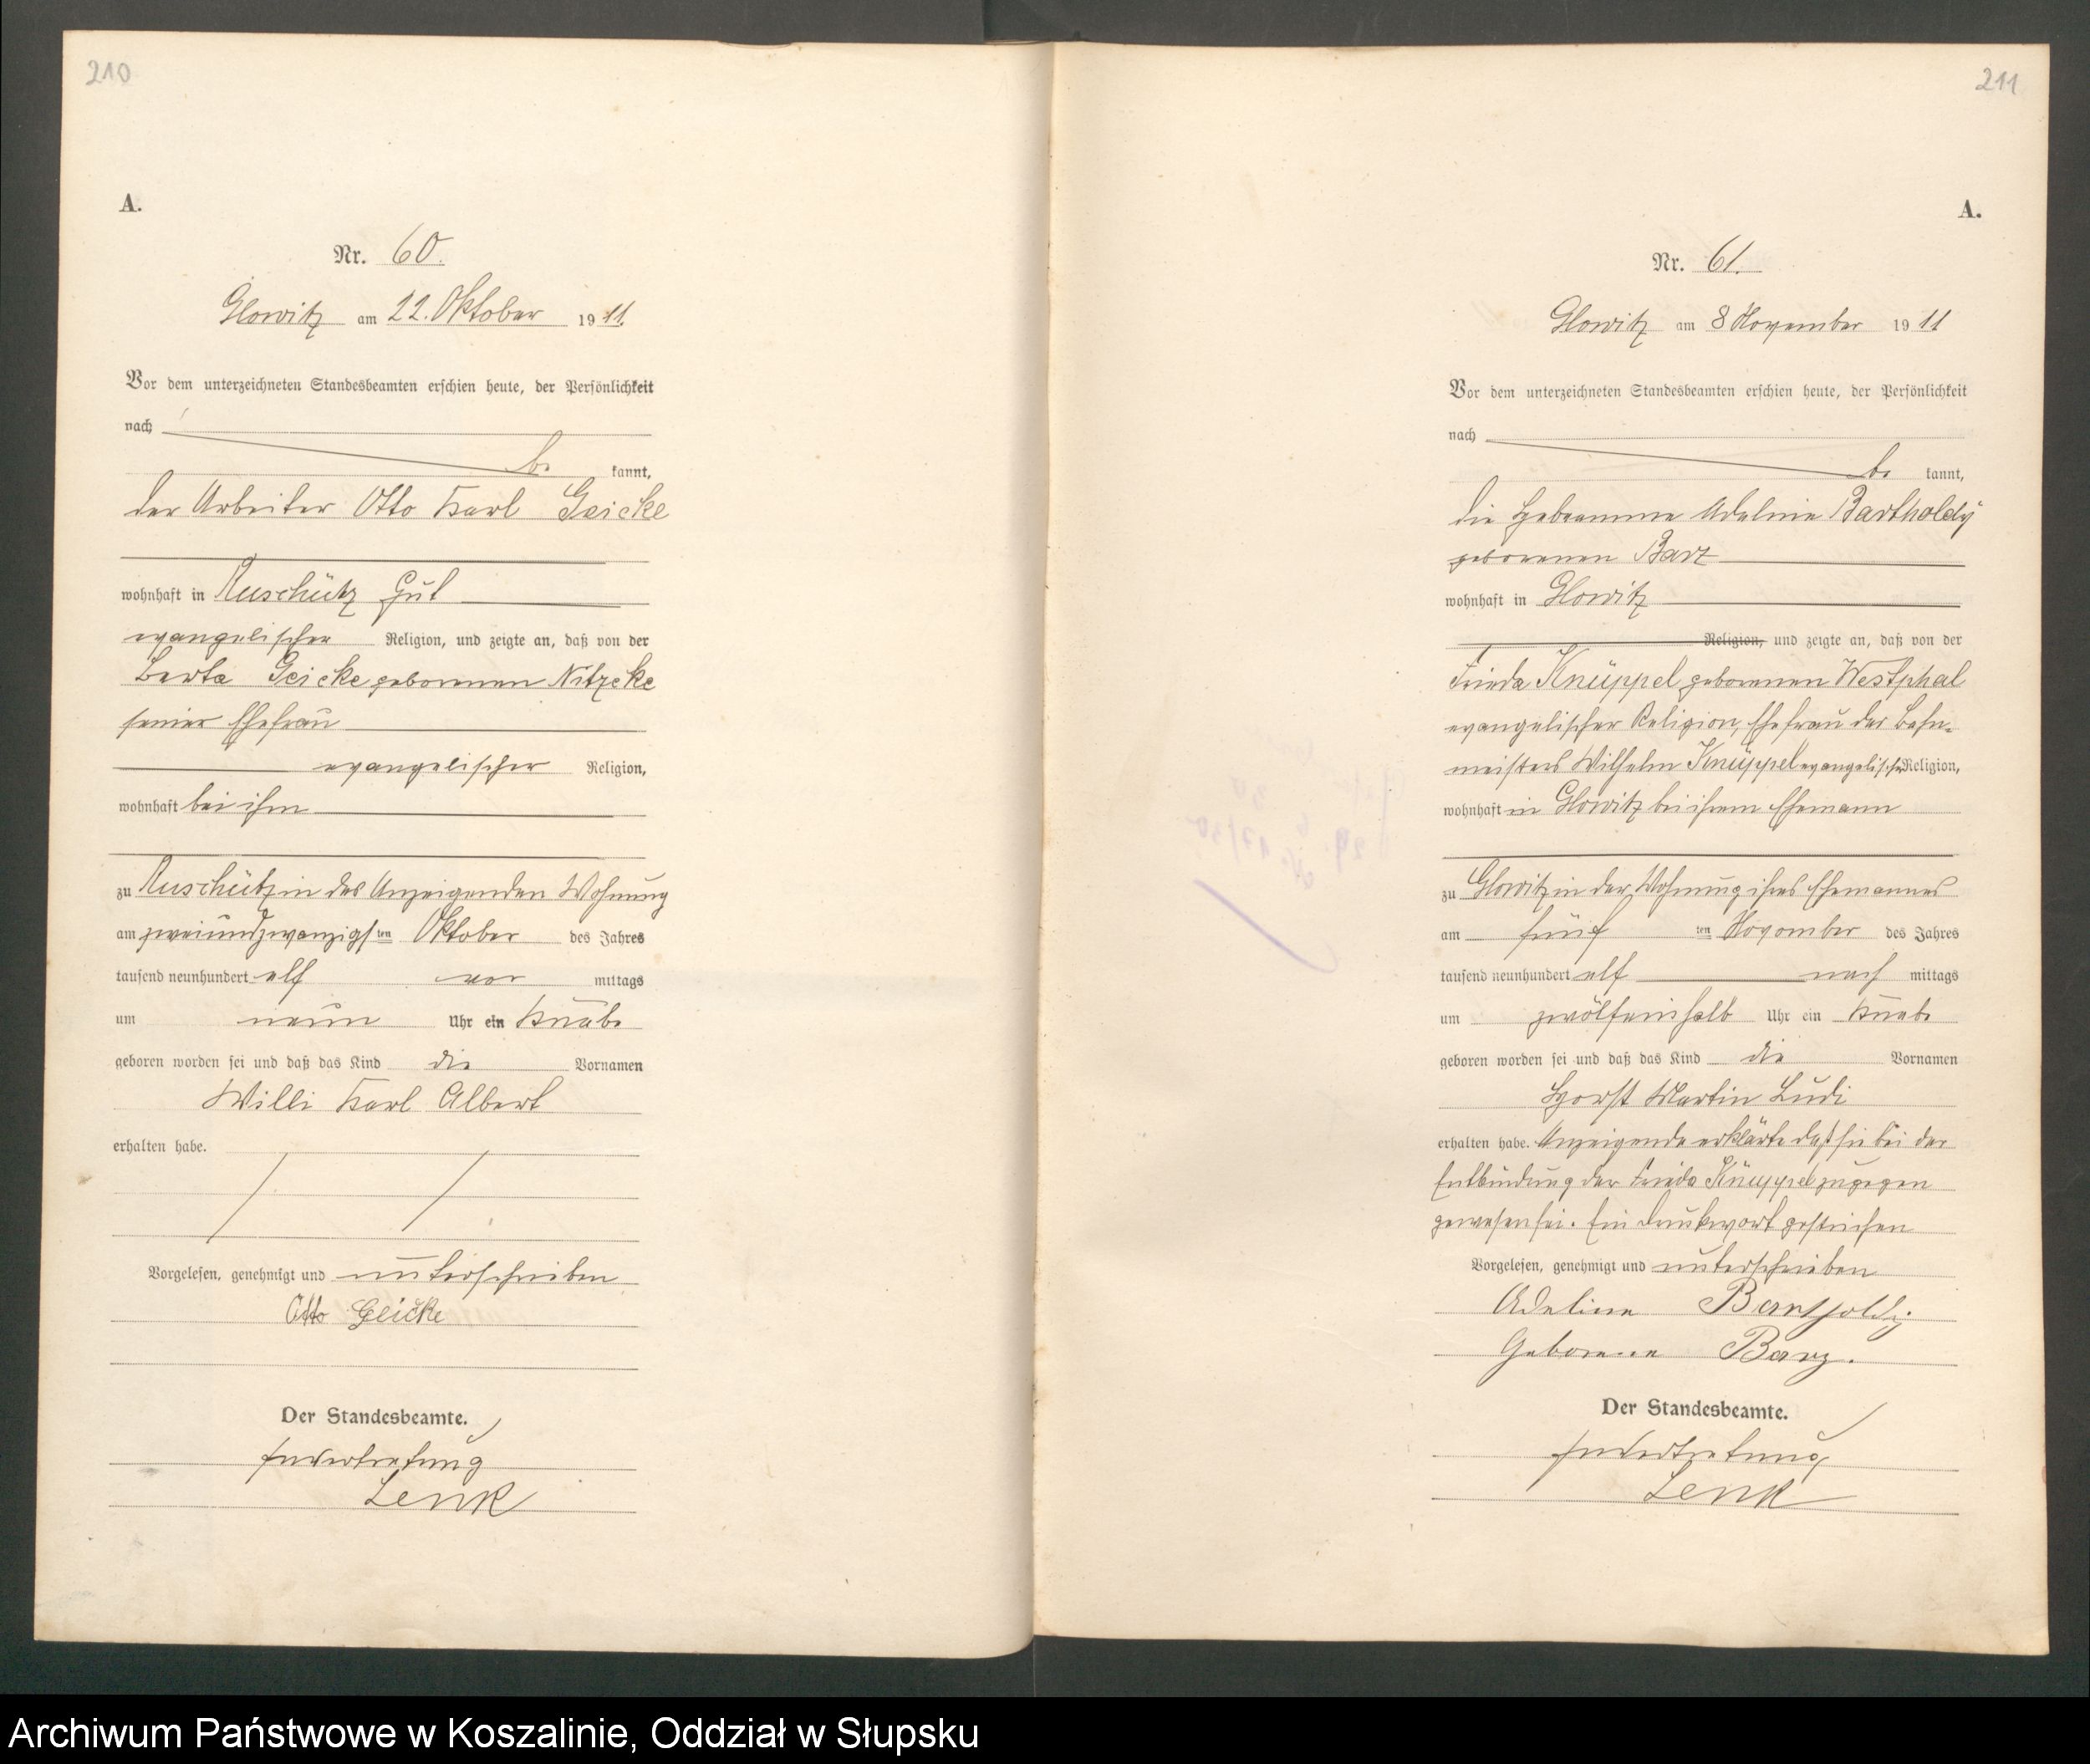 210
A.
Nr. 60.
Glowitz am 22. Oktober 1911.
Vor dem unterzeichneten Standesbeamten erschien heute, der Persönlichkeit
nach
be kannt,
der Arbeiter Otto Karl Geicke
wohnhaft in Ruschütz Gut
evangelischer Religion, und zeigte an, daß von der
Berta Geicke geborenen Nitzcke
seiner Ehefrau
evangelischer Religion,
wohnhaft bei ihm
zu Ruschütz in des Anzeigenden Wohnung
am zweiundzwanzigsten Oktober des Jahres
tausend neunhundert elf vor mittags
um neun Uhr ein Knabe
geboren worden sei und daß das Kind die Vornamen
Willi Karl Albert
erhalten habe.
Vorgelesen, genehmigt und unterschrieben
Otto Geicke
Der Standesbeamte.
In Vertretung
Lenk
211
A.
Nr. 61.
Glowitz am 8 November 1911
Vor dem unterzeichneten Standesbeamten erschien heute, der Persönlichkeit
nach
be kannt,
die Hebeamme Adeline Bartholdy
geborenen Barz
wohnhaft in Glowitz
Religion, und zeigte an, daß von der
Frieda Knüppel geborenen Westphal
evangelischer Religion, Ehefrau des Bahn-
meisters Wilhelm Knüppel evangelischer Religion,
wohnhaft in Glowitz bei ihrem Ehemann
zu Glowitz in der Wohnung ihres Ehemannes
am fünf ten November des Jahres
tausend neunhundert elf nach mittags
um zwölfeinhalb Uhr ein Knabe
geboren worden sei und daß das Kind die Vornamen
Horst Martin Ludi
erhalten habe. Anzeigende erklärte daß sie bei der
Entbindung der Frieda Knüppel zugegen
gewesen sei. Ein Druckwort gestrichen
Vorgelesen, genehmigt und unterschrieben
Adeline Bartholdy
Geborene Barz.
Der Standesbeamte.
In Vertretung
Lenk
Archiwum Państwowe w Koszalinie, Oddział w Słupsku